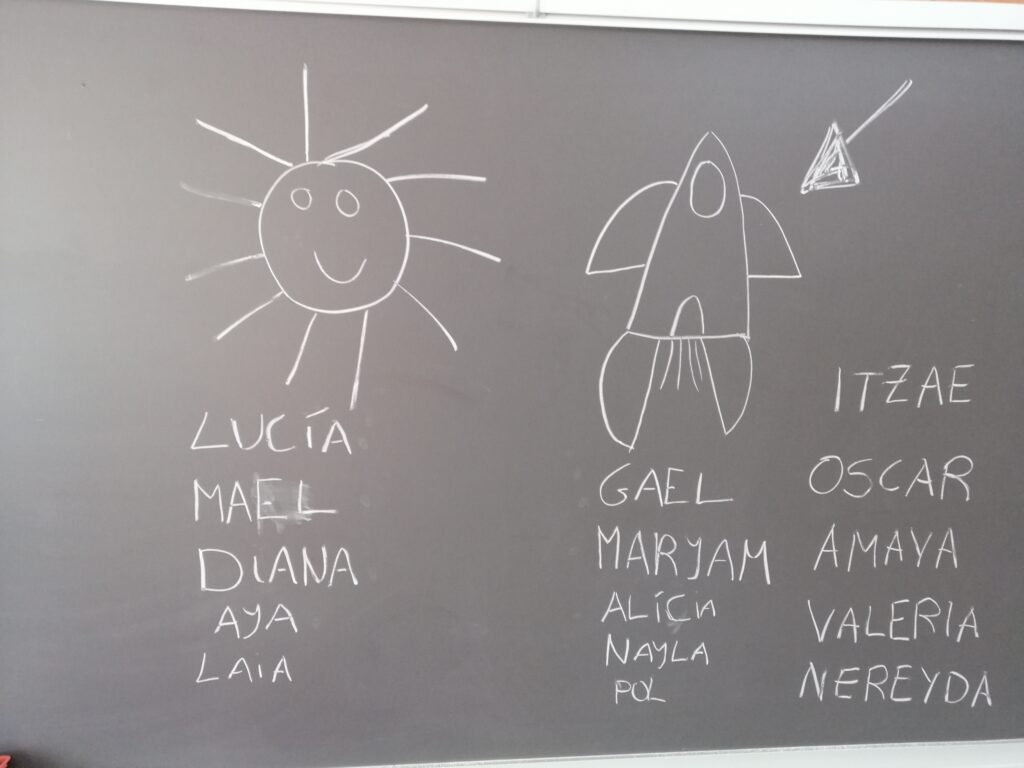 LUCÍA
MAEL
DIANA
AYA
LAIA
GAEL
MARYAM
ALÍCIA
NAYLA
POL
ITZAE
OSCAR
AMAYA
VALERIA
NEREYDA